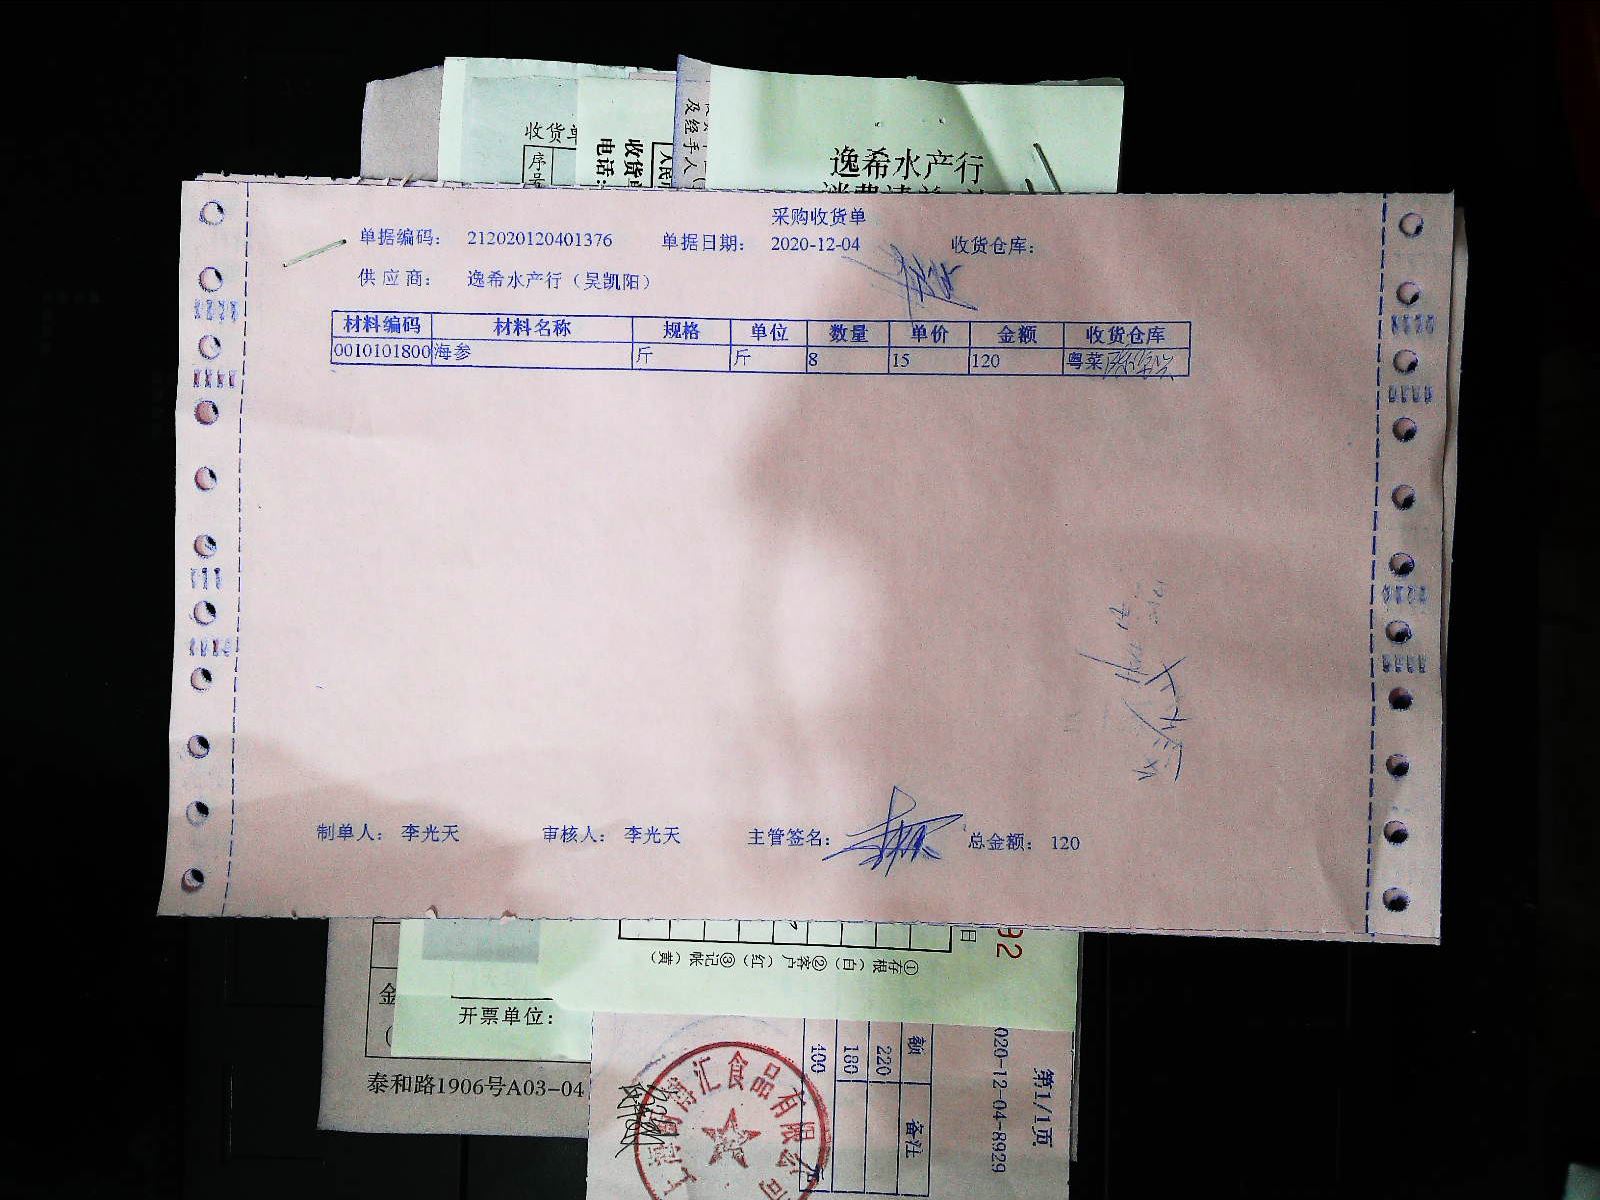 收货单
序号
收货单
电话:
人民币
及经手人(
逸希水产行
采购收货单
单据编码: 212020120401376 单据日期: 2020-12-04 收货仓库:
供应商: 逸希水产行（吴凯阳）
材料编码 材料名称 规格 单位 数量 单价 金额 收货仓库
0010101800 海参 斤 斤 8 15 120 粤菜
制单人: 李光天 审核人: 李光天 主管签名: 总金额: 120
①存根（白）②客户（红）③记帐（黄）
日
92
金
开票单位:
泰和路1906号A03-04
额 备注
220
180
400
020-12-04-8929
第1/1页
博汇食品有限公司